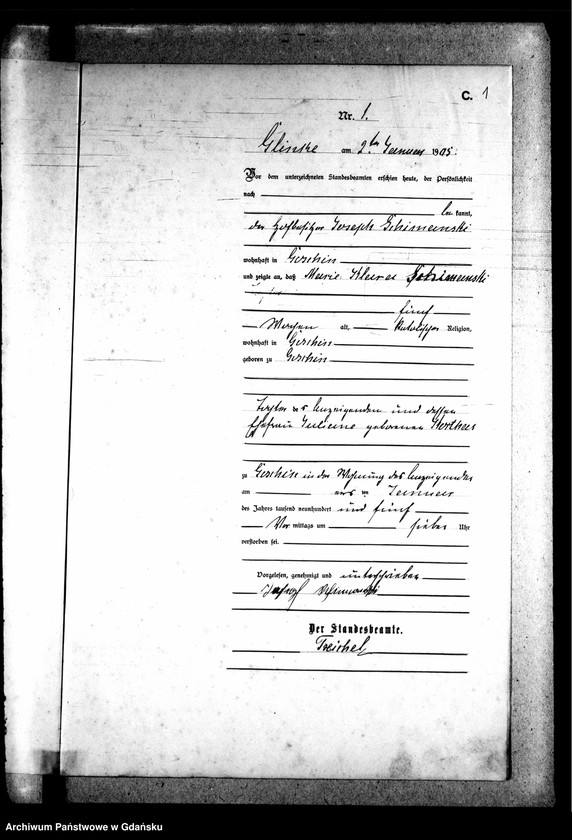 C. 1
Nr. 1.
Glinke am 2ten Januar 1905.
Vor dem unterzeichneten Standesbeamten erschien heute, der Persönlichkeit
nach
be kannt,
der Hofbesitzer Joseph Schimanski
wohnhaft in
und zeigte an, daß Marie Klara Schimanski
fünf
Wochen alt, katholischer Religion,
wohnhaft in
geboren zu
Tochter des Anzeigenden und dessen
Ehefrau Juliane geborenen
zu in der Wohnung des Anzeigenden
am ersten Januar
des Jahres tausend neunhundert und fünf
Vor mittags um sieben Uhr
verstorben sei.
Vorgelesen, genehmigt und unterschrieben
Josef Schimanski
Der Standesbeamte.
Treichel
Archiwum Państwowe w Gdańsku